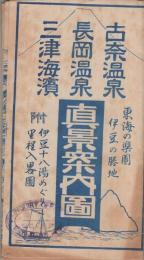 古奈温泉
長岡温泉
三津海濱
直景案内圖
東海の樂園
伊豆の勝地
附 伊豆十八湯めぐり
里程入畧圖